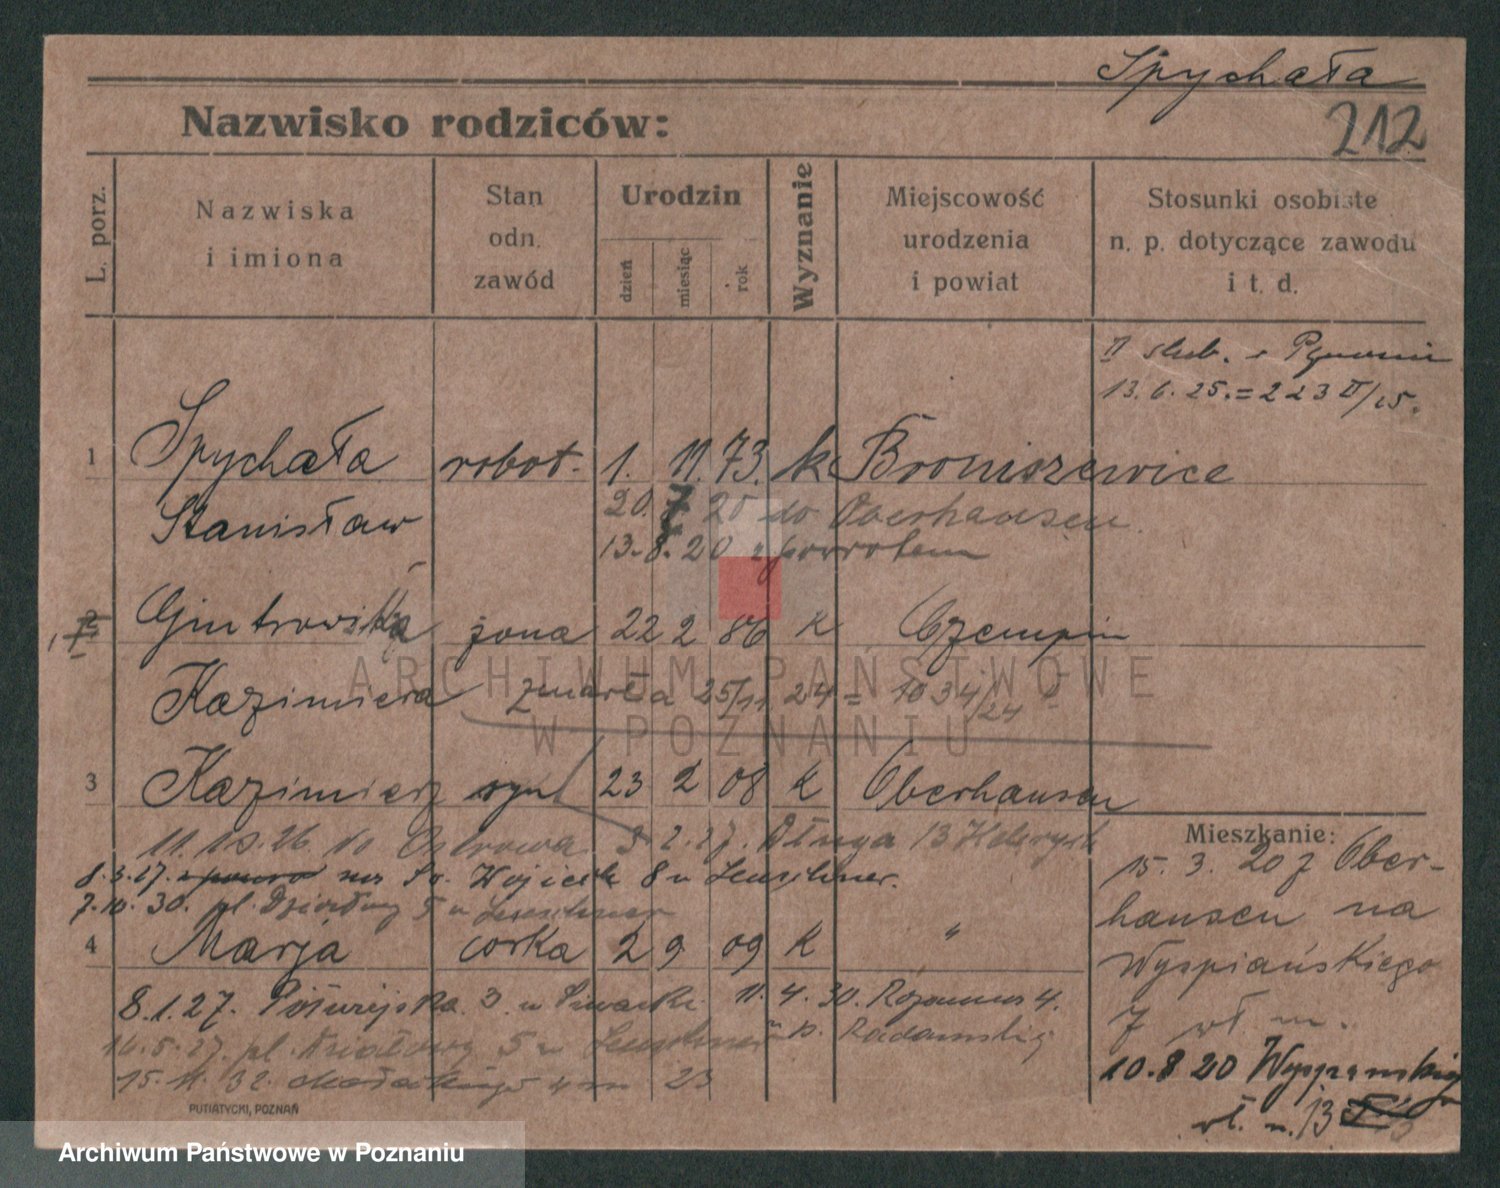 Spychała
Nazwisko rodziców:
212
L. porz.
Nazwiska
i imiona
Stan
odn.
zawód
Urodzin
dzień
miesiąc
rok
Wyznanie
Miejscowość
urodzenia
i powiat
Stosunki osobiste
n. p. dotyczące zawodu
i t. d.
II ślub.
13. 6. 25. = 223 II/25.
1 Spychała robot. 1. 11. 73. k Broniszewice
Stanisław 20. 7 20 do Oberhausen
13. 8. 20 z powrotem
2 żona 22 2 86 k Czempin
Kazimiera zmarła 25/11 24 = 1034/24
3 Kazimierz syn 23 2 08 k Oberhausen
11. 10. 26. do Ostrowa 3 2. 27. Długa 13
8. 3. 27. na Św. Wojciech 8 u
7. 10. 30. pl. Działowy 5 u
4 Marja córka 2 9 09 k "
8. 1. 27. 3. u 11. 4. 30. 4.
16. 5. 27. pl. Działowy 5 u
15. 11. 32. 23
Mieszkanie:
15. 3. 20 z Ober-
hausen na
Wyspiańskiego
7 wł. m.
10. 8 20 Wyspiańskiego
wł. m. 13
PUTIATYCKI, POZNAŃ
ARCHIWUM PAŃSTWOWE
W POZNANIU
Archiwum Państwowe w Poznaniu